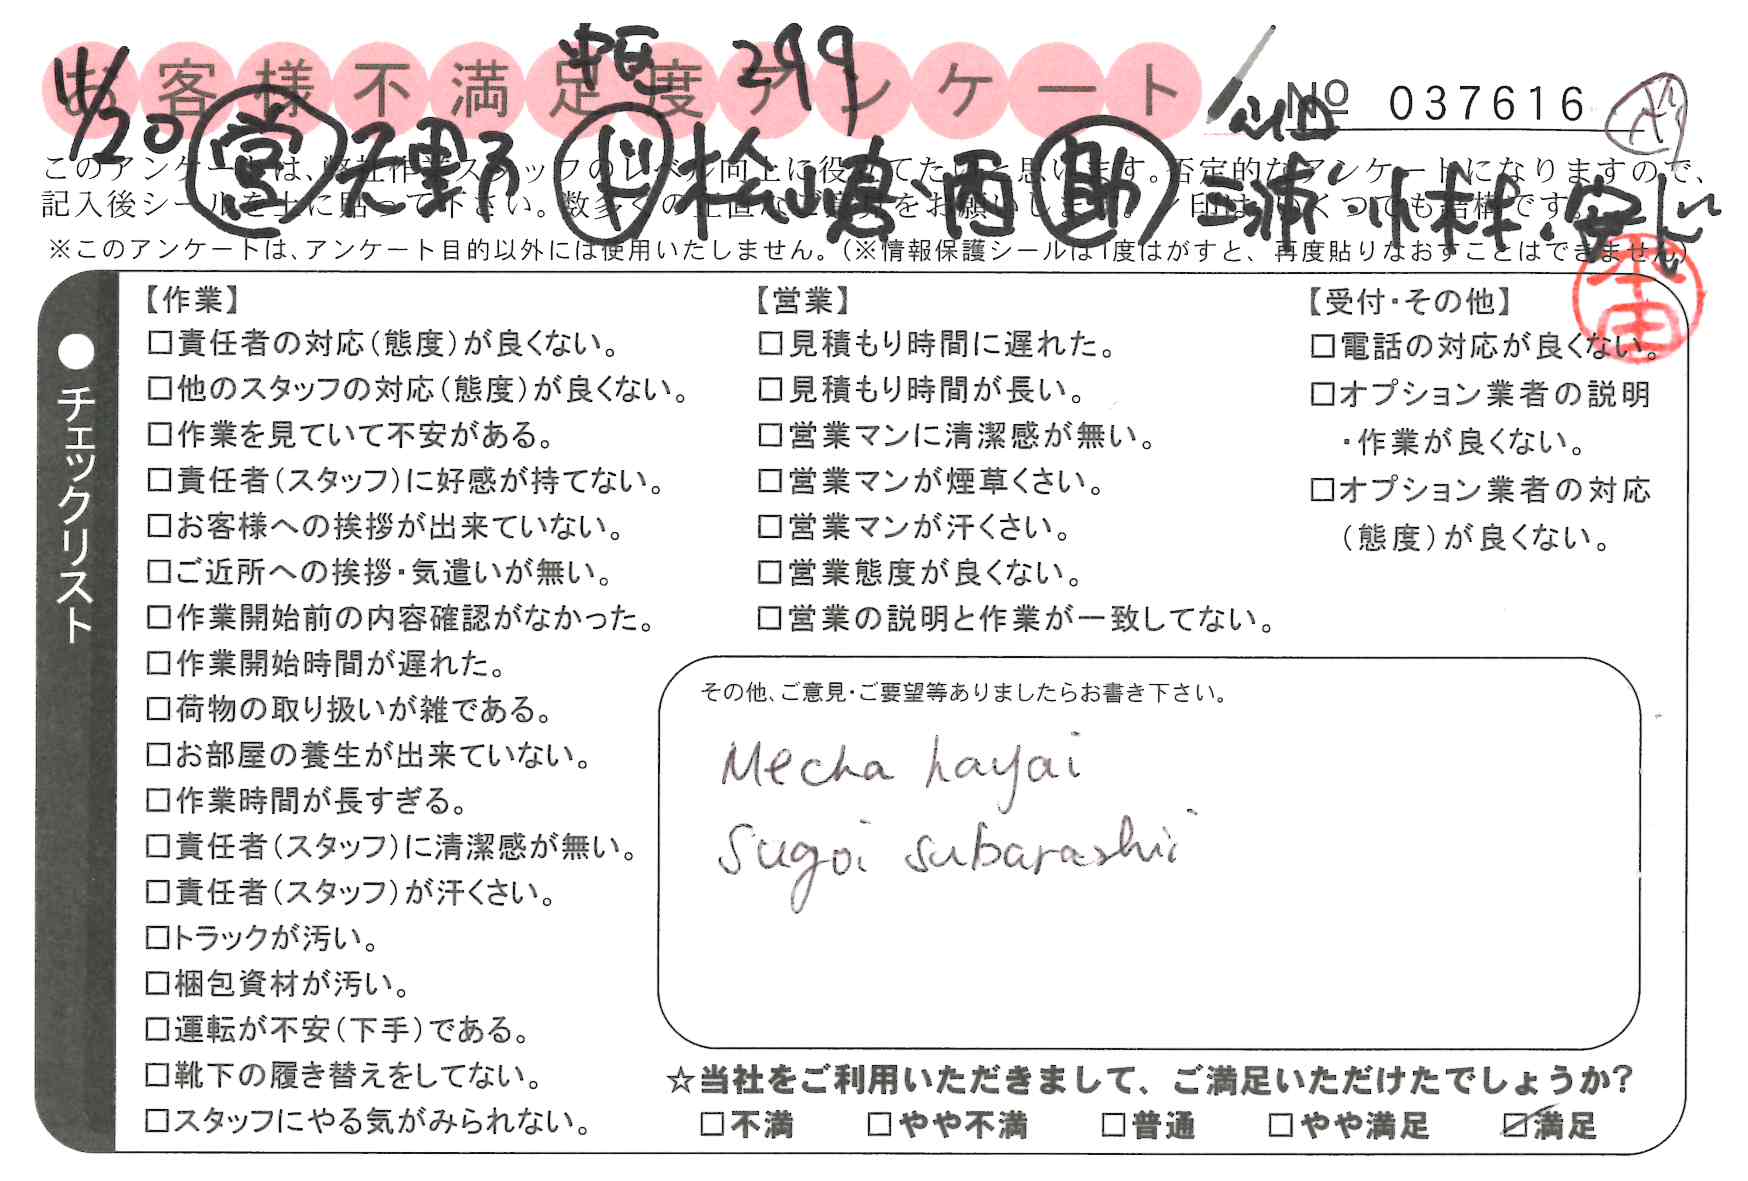 お客様不満足度アンケート
299
№ 037616
11/20 営 天野 ド 松嶌・西 助 三浦・小林・安
このアンケートは、弊社作業スタッフのレベル向上に役立てたいと思います。否定的なアンケートになりますので、
記入後シールを上に貼って下さい。数多くの正直なご意見をお願いします。✓印は、いくつでも結構です。
※このアンケートは、アンケート目的以外には使用いたしません。（※情報保護シールは1度はがすと、再度貼りなおすことはできません）
●チェックリスト
【作業】
□責任者の対応（態度）が良くない。
□他のスタッフの対応（態度）が良くない。
□作業を見ていて不安がある。
□責任者（スタッフ）に好感が持てない。
□お客様への挨拶が出来ていない。
□ご近所への挨拶・気遣いが無い。
□作業開始前の内容確認がなかった。
□作業開始時間が遅れた。
□荷物の取り扱いが雑である。
□お部屋の養生が出来ていない。
□作業時間が長すぎる。
□責任者（スタッフ）に清潔感が無い。
□責任者（スタッフ）が汗くさい。
□トラックが汚い。
□梱包資材が汚い。
□運転が不安（下手）である。
□靴下の履き替えをしてない。
□スタッフにやる気がみられない。
【営業】
□見積もり時間に遅れた。
□見積もり時間が長い。
□営業マンに清潔感が無い。
□営業マンが煙草くさい。
□営業マンが汗くさい。
□営業態度が良くない。
□営業の説明と作業が一致してない。
【受付・その他】
□電話の対応が良くない。
□オプション業者の説明
・作業が良くない。
□オプション業者の対応
（態度）が良くない。
本田
その他、ご意見・ご要望等ありましたらお書き下さい。
Mecha hayai
Sugoi subarashii
☆当社をご利用いただきまして、ご満足いただけたでしょうか？
□不満 □やや不満 □普通 □やや満足 ☑満足